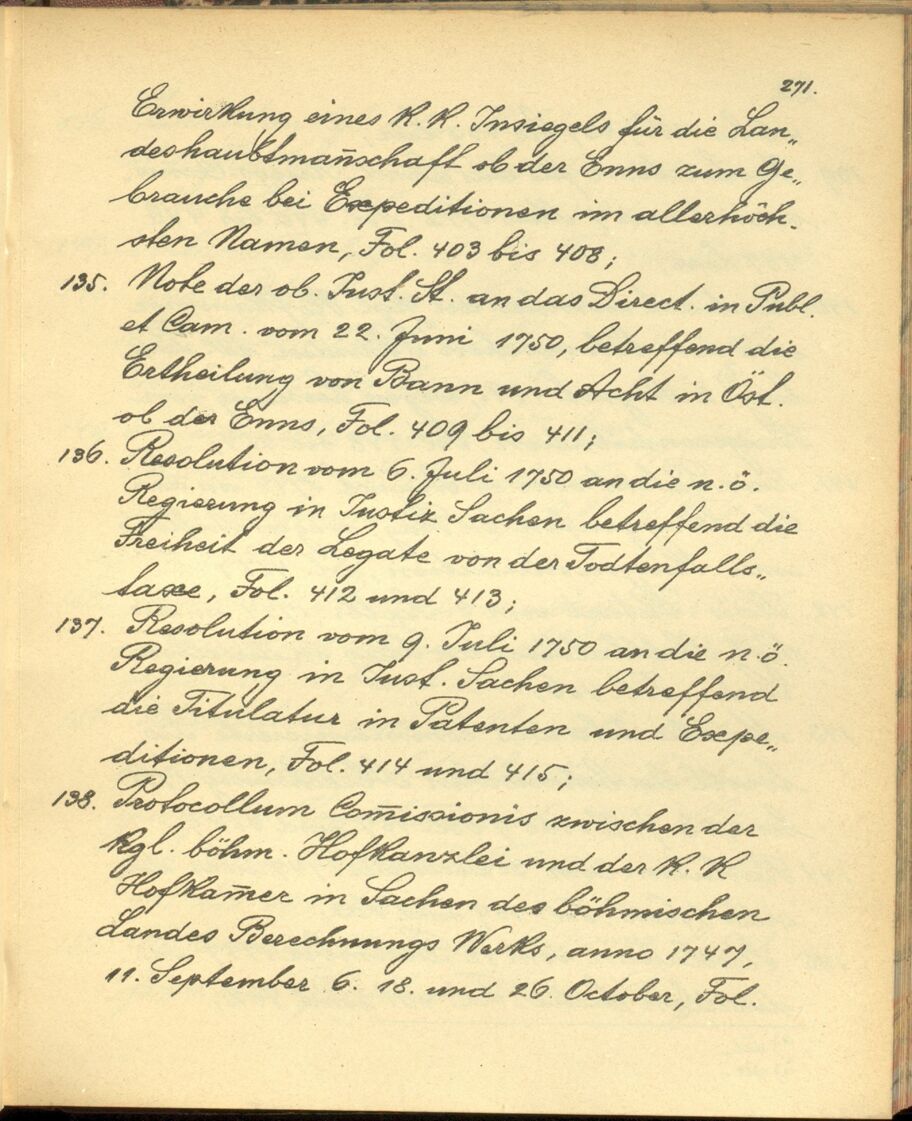 271.
Erwirkung eines K. K. Insiegels für die Lan„
deshaubtman̄schaft ob der Enns zum Ge„
brauche bei Expeditionen im allerhöch-
sten Namen, Fol. 403 bis 408;
135. Note der ob. Just. St. an das Direct. in Publ.
et Cam. vom 22. Juni 1750, betreffend die
Ertheilung von Bann und Acht in Öst.
ob der Enns, Fol. 409 bis 411;
136. Resolution vom 6. Juli 1750 an die n. ö.
Regierung in Justiz Sachen betreffend die
Freiheit der Legate von der Todtenfalls„
taxe, Fol. 412 und 413;
137. Resolution vom 9. Juli 1750 an die n. ö.
Regierung in Just. Sachen betreffend
die Titulatur in Patenten und Expe„
ditionen, Fol. 414 und 415;
138. Protocollum Com̄issionis zwischen der
Kgl. böhm. Hofkanzlei und der K. K
Hofkam̄er in Sachen des böhmischen
Landes Berechnungs Werks, anno 1747,
11. September 6. 18. und 26. October, Fol.